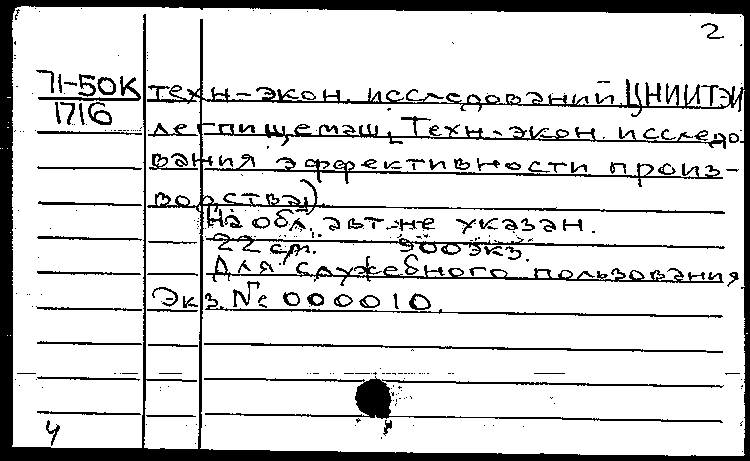 2
71-50К техн-экон. исследований ЦНИИТЭИ
1716 легпищемаш, Техн-экон. исследо
вания эффективности произ-
водства)
На обл. авт. не указан.
22 см. 900 экз.
Для служебного пользования
Экз. № 000010.
4